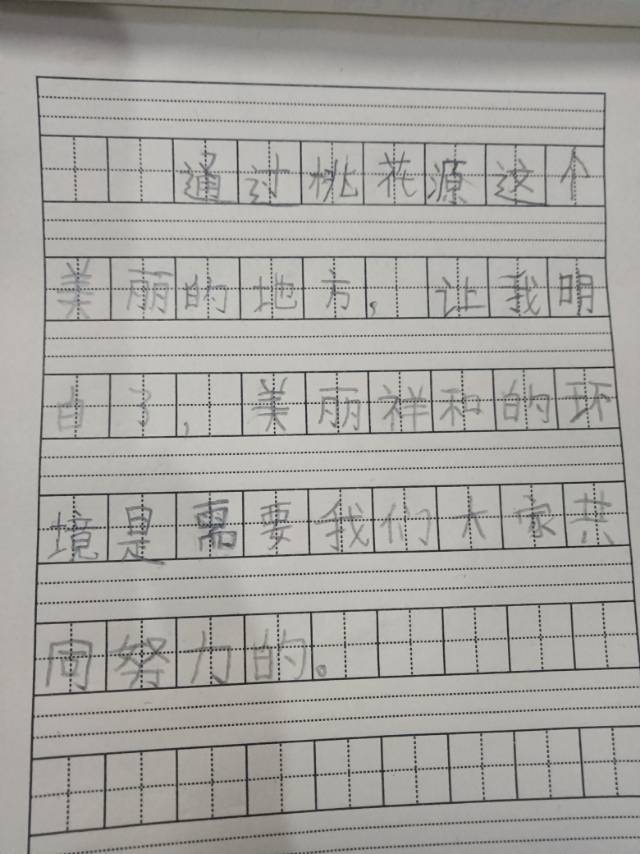 通过桃花源这个
美丽的地方,让我明
白了,美丽祥和的环
境是需要我们大家共
同努力的。